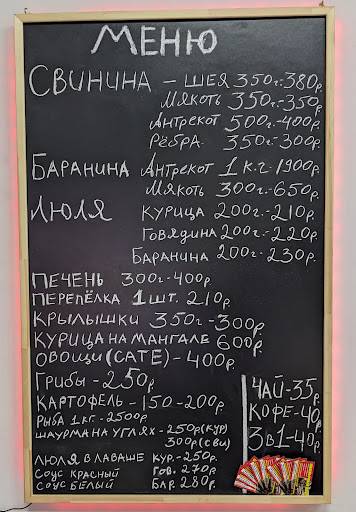 МЕНЮ
СВИНИНА – ШЕЯ 350г.-380р.
МЯКОТЬ 350г.-350р.
АНТРЕКОТ 500г.-400р.
РЁБРА 350г-300р.
БАРАНИНА АНТРЕКОТ 1 К.Г-1900р.
МЯКОТЬ 300г.-650р.
ЛЮЛЯ КУРИЦА 200г.-210р.
ГОВЯДИНА 200г.-220р.
БАРАНИНА 200г-230р.
ПЕЧЕНЬ 300г-400р.
ПЕРЕПЁЛКА 1 ШТ. 210р.
КРЫЛЫШКИ 350г-300р.
КУРИЦА НА МАНГАЛЕ 600р.
ОВОЩИ (САТЕ) - 400р.
ГРИБЫ - 250р
КАРТОФЕЛЬ - 150-200р.
РЫБА 1 КГ. - 2500р.
ШАУРМА НА УГЛЯХ - 250р(КУР)
300р(СВИ)
ЛЮЛЯ В ЛАВАШЕ КУР.-250р.
СОУС КРАСНЫЙ ГОВ. 270р.
СОУС БЕЛЫЙ БАР. 280р.
ЧАЙ-35р.
КОФЕ-40р
3в1-40р.